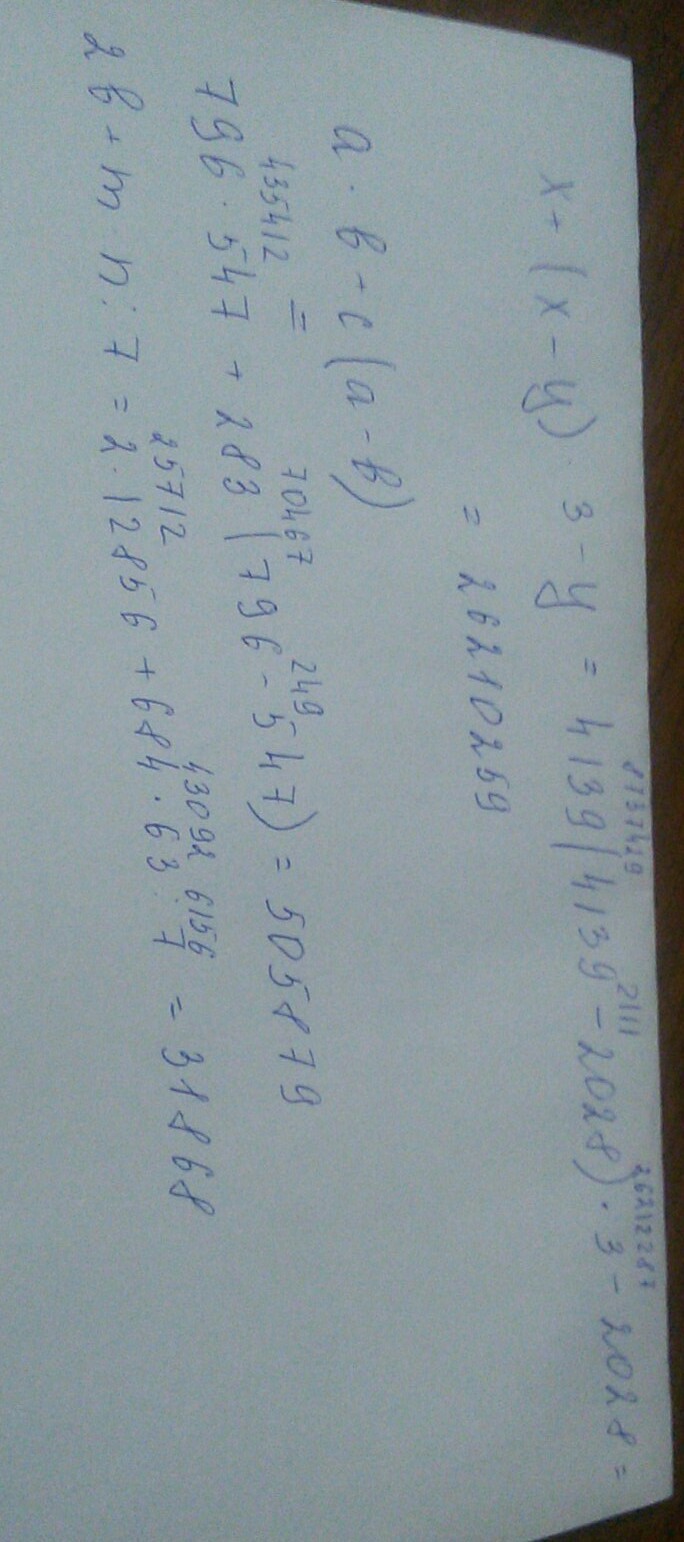 8737429 2111 26212287
x + (x - y) · 3 - y = 4139(4139 - 2028) · 3 - 2028 =
= 26210259
a · b + c (a - b)
435412 = 70467 249
796 · 547 + 283 (796 - 547) = 505879
25712 43092 6156
2b + m · n : 7 = 2 · 12856 + 684 · 63 : 7 = 31868